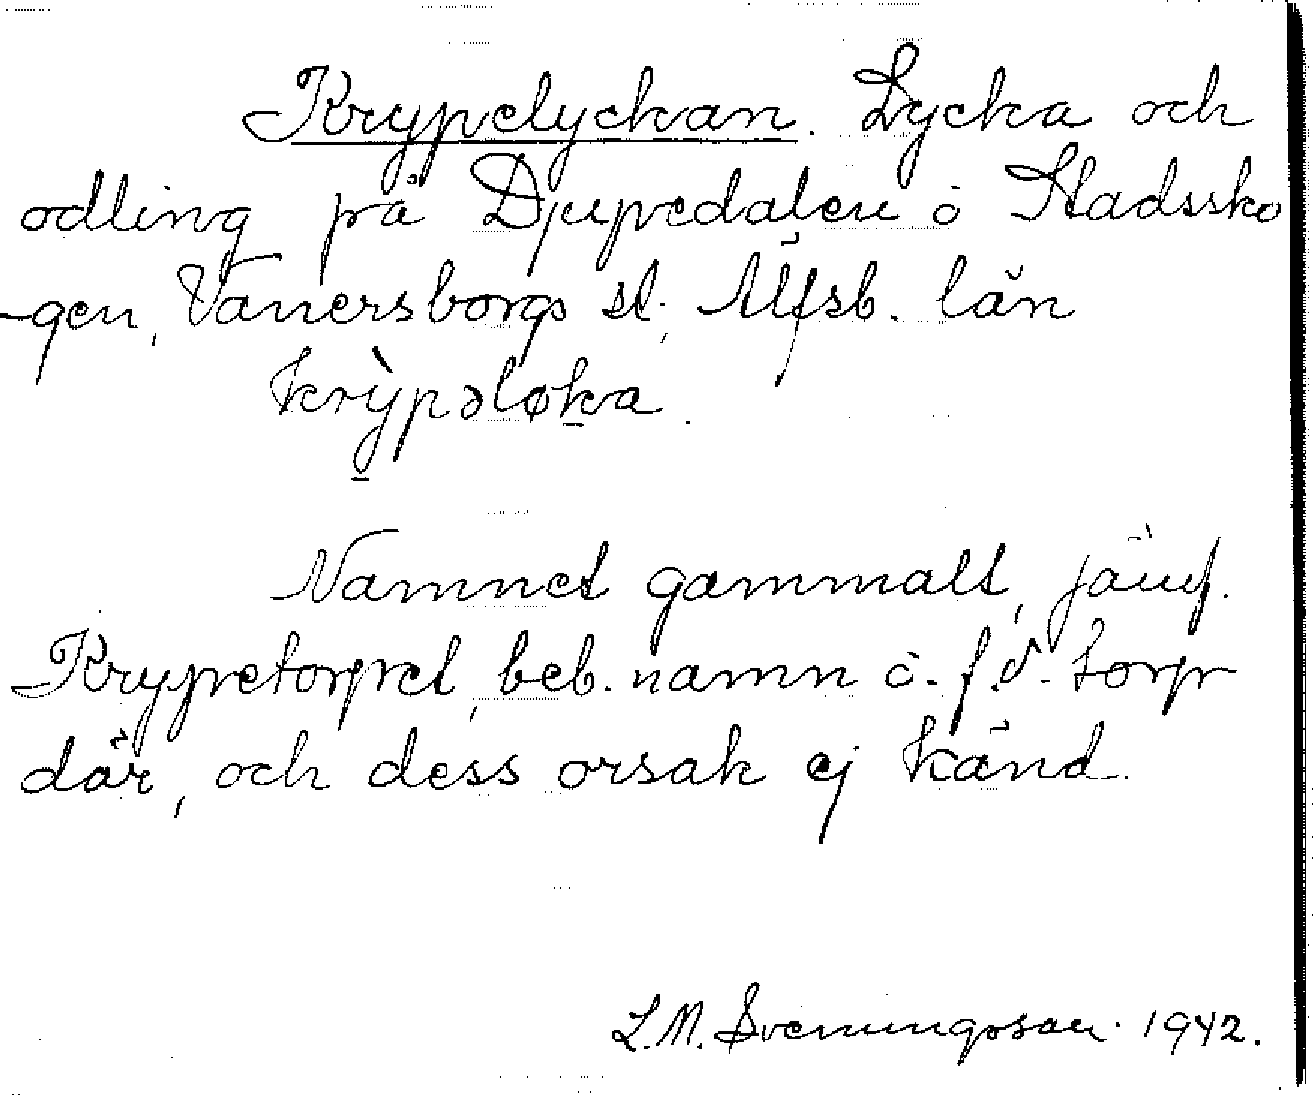 Krypelyckan. Lycka och
odling på Djupedalen ö Stadssko
-gen, Vänersborgs st., Älfsb. län
krỳpəløka.
Namnet gammalt, jämf.
Krypetorpet, beb. namn å. f.d. torp
där, och dess orsak ej känd.
L.M. Svenungsson. 1942.